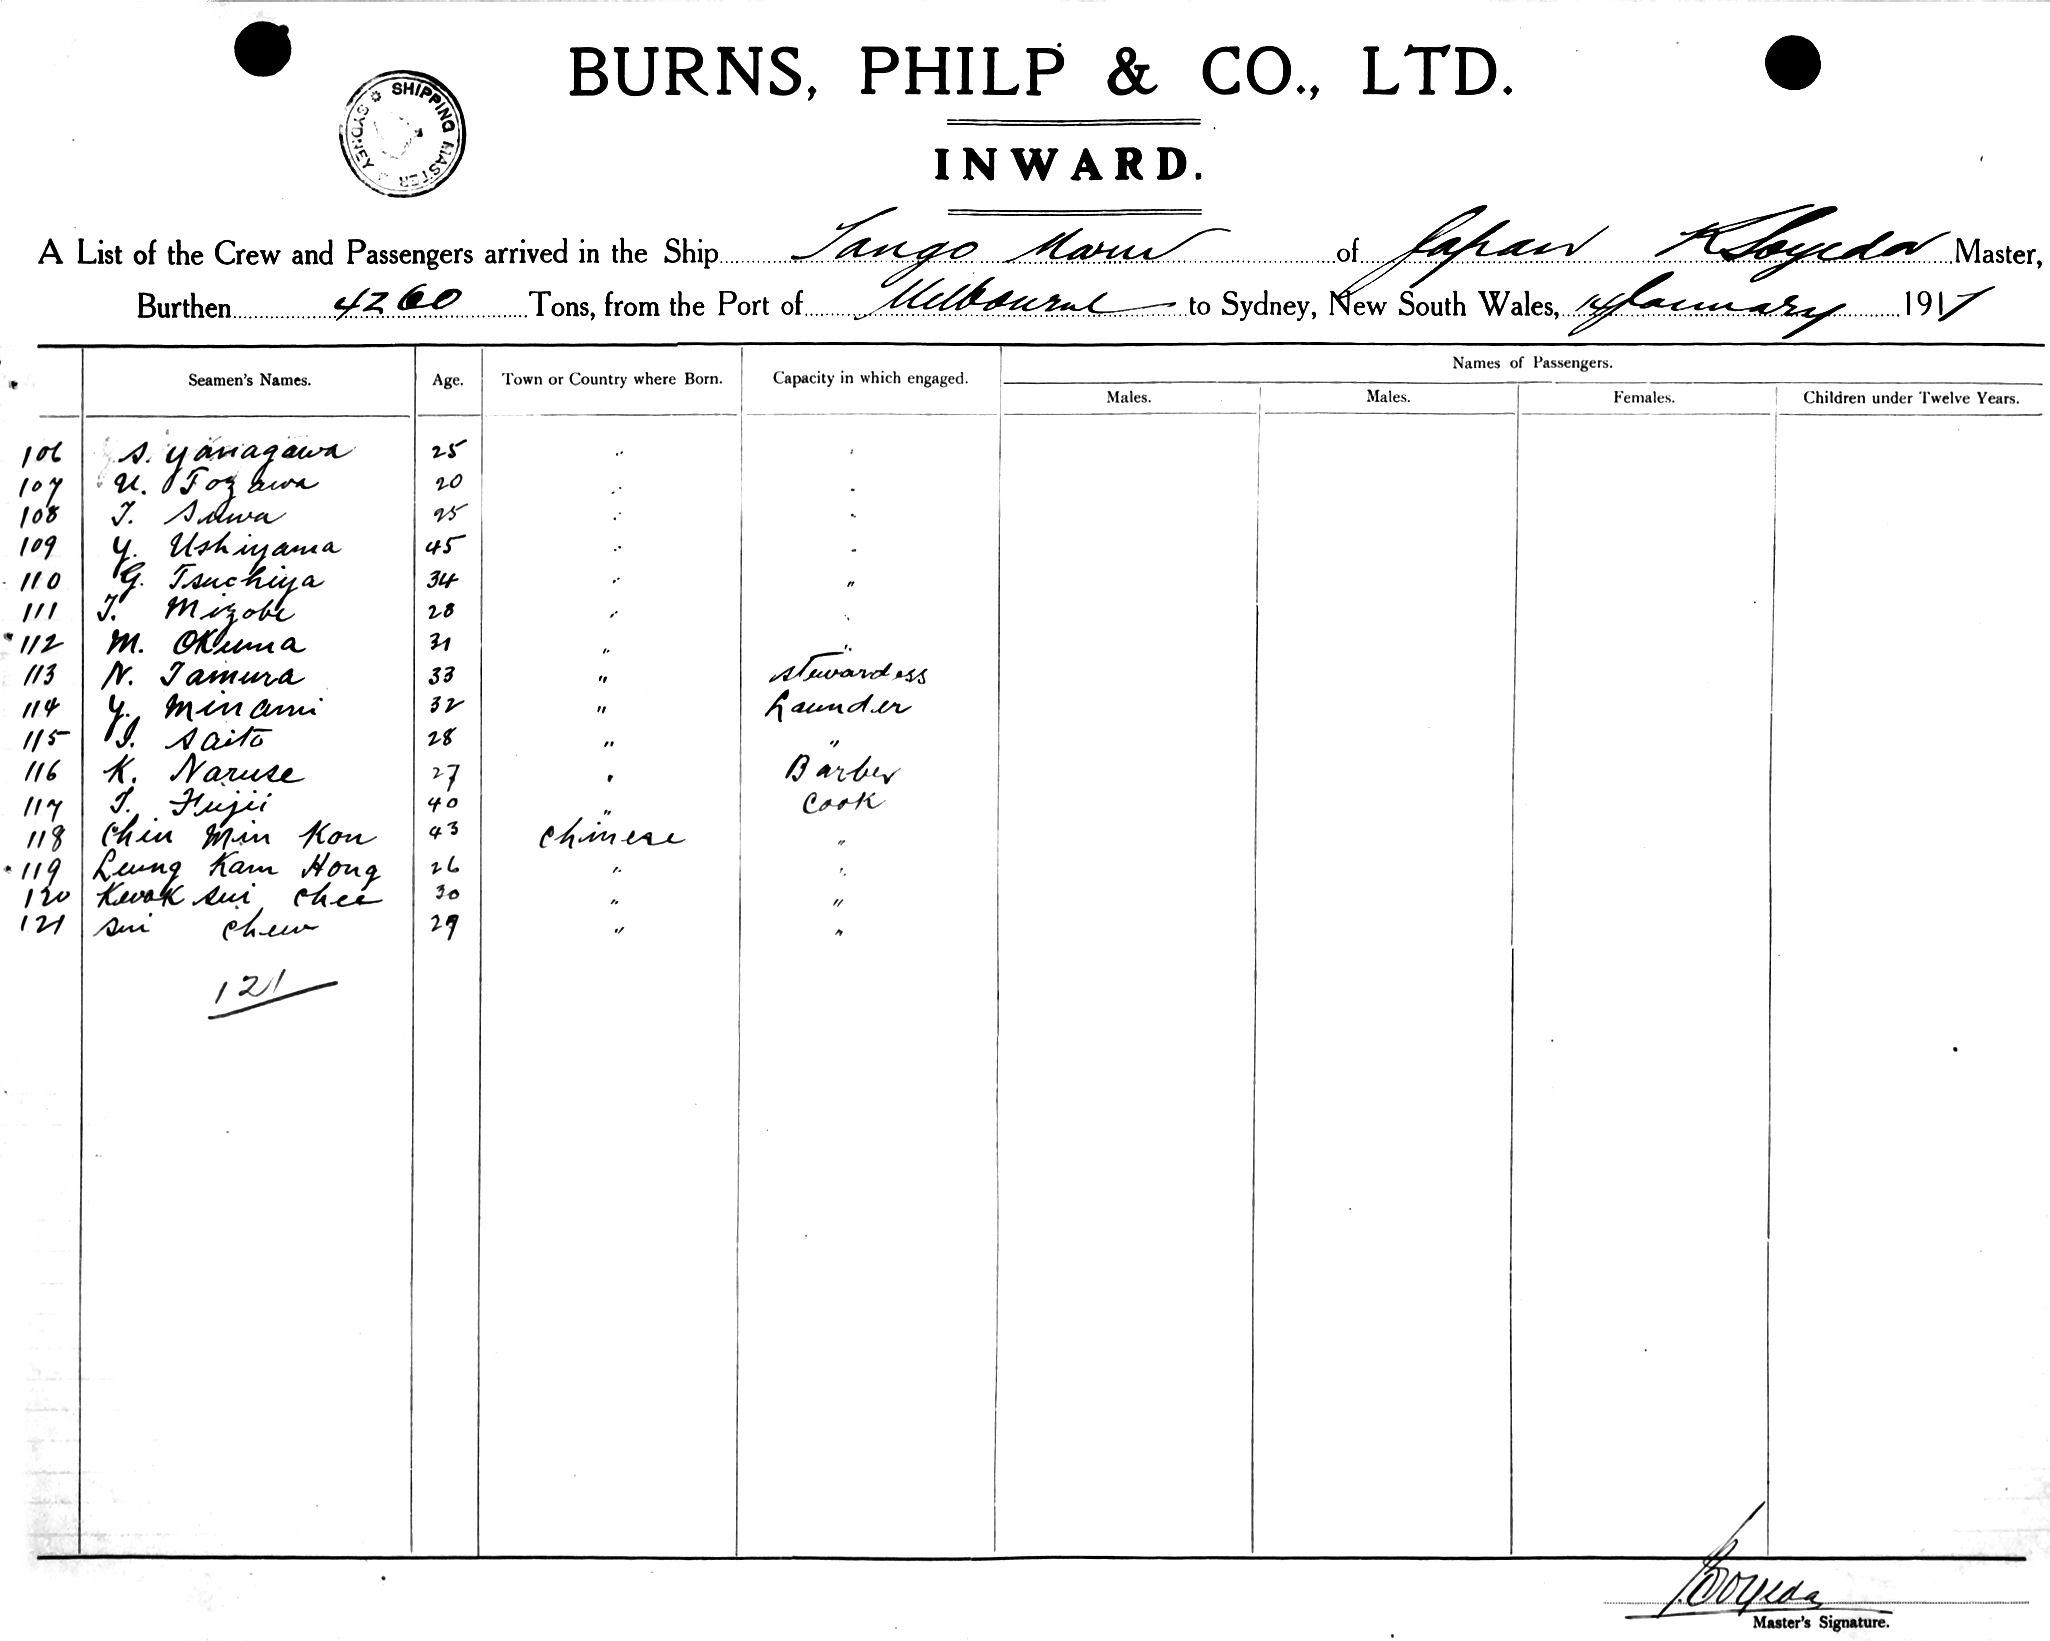 BURNS, PHILP & CO., LTD.
SHIPPING MASTER SYDNEY
INWARD.
A List of the Crew and Passengers arrived in the Ship Tango Maru of Japan K Soyeda Master,
Burthen 4260 Tons, from the Port of Melbourne to Sydney, New South Wales, 14 January 1917
Names of Passengers.
Seamen's Names. Age. Town or Country where Born. Capacity in which engaged. Males. Males. Females. Children under Twelve Years.
106 S. Yanagawa 25 " "
107 U. Tozawa 20 " "
108 T. Suwa 25 " "
109 Y. Ushiyama 45 " "
110 G. Tsuchiya 34 " "
111 T. Mizobe 28 " "
112 M. Okuma 31 " "
113 N. Tamura 33 " Stewardess
114 Y. Minami 32 " Launder
115 I. Saito 28 " "
116 K. Naruse 27 " Barber
117 T. Fujii 40 " Cook
118 Chin Min Kon 43 Chinese "
119 Leung Kam Hong 26 " "
120 Kwok Sui Chee 30 " "
121 Sui Chew 29 " "
121
K Soyeda
Master's Signature.